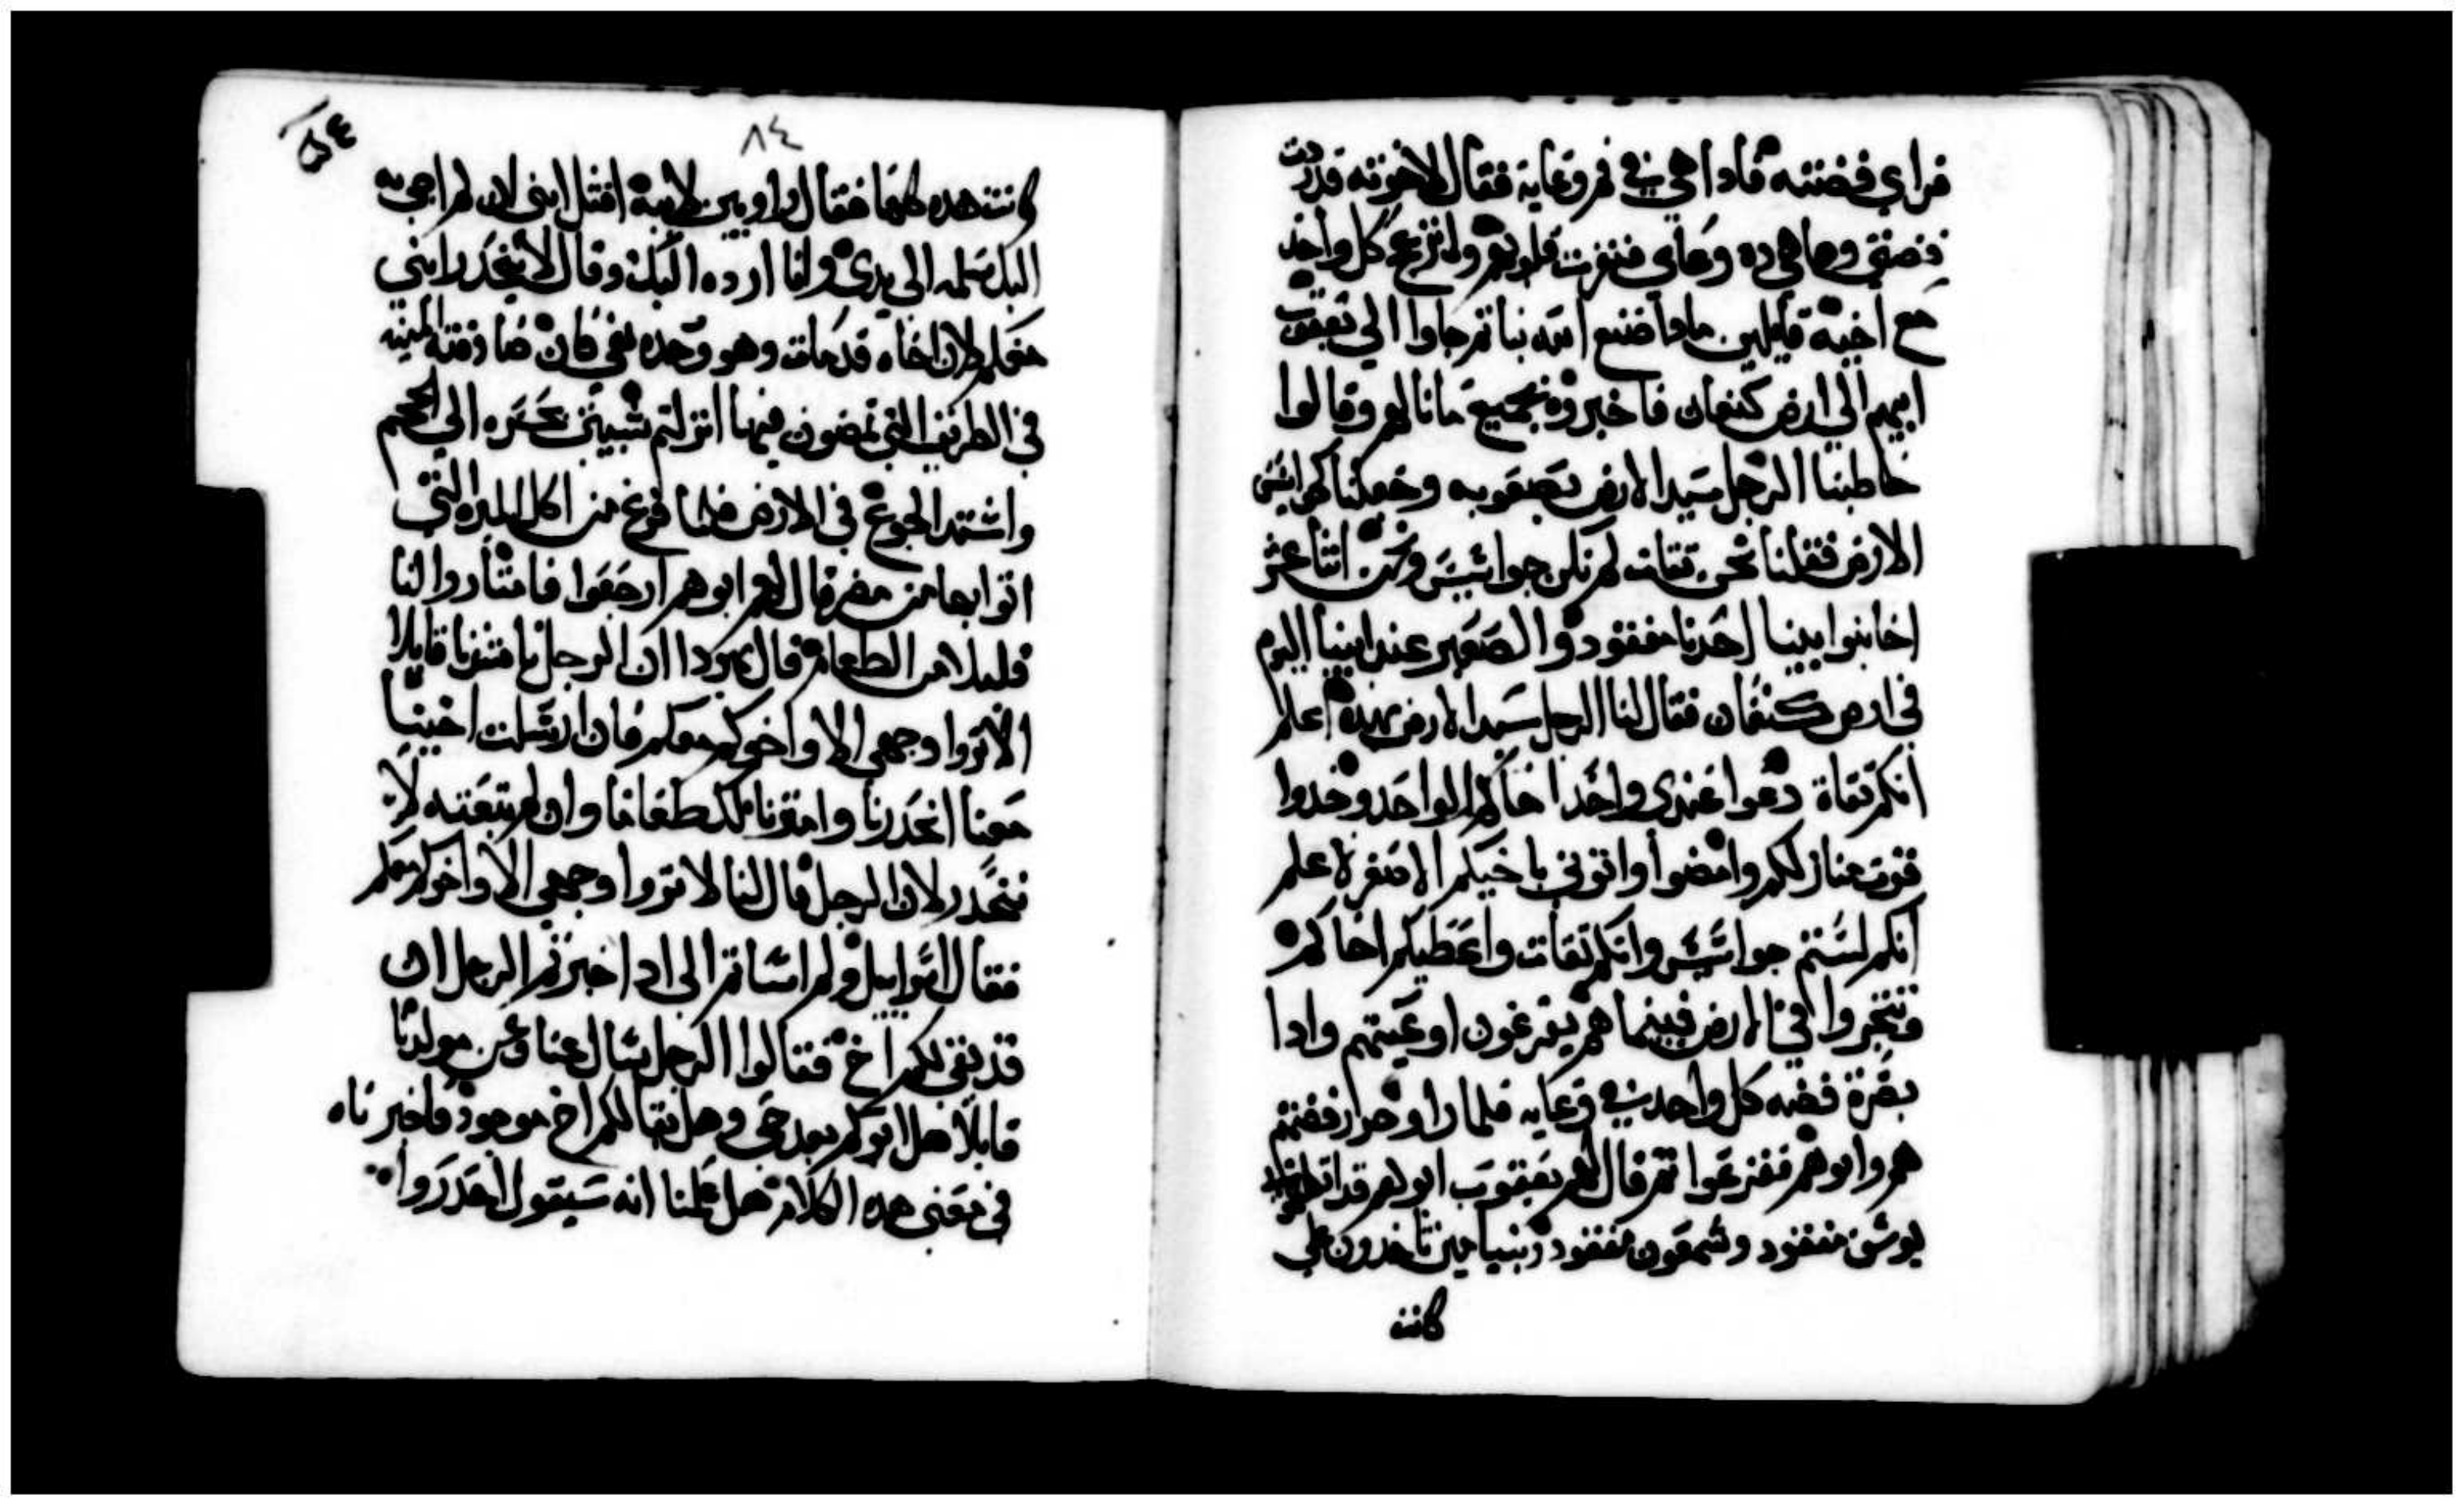 فراي فضته فادا هي في فم وعايه فقال لاخوته قد ردت
فضتي وها هي ده وعاي فنفرت قلوبهم وانزعج كل واحد
مع اخيه قايلين مادا صنع الله بنا ثم جاوا الي يعقوب
ابيهم الي ارض كنعان فاخبروه بجميع ما نالهم وقالوا
خاطبنا الرجل سيد الارض بصعوبه وجعلنا كجواسيس
الارض فقلنا نحن ثقات لم نكن جواسيس ونحن اثنا عشر
اخا بنوا ابينا احدنا مفقود والصغير عند ابينا اليوم
في ارض كنعان فقال لنا الرجل سيد الارض بهده اعلم
انكم ثقاة دعوا عندي واحدا اخاكم الواحد وخدوا
قوت منازلكم وامضوا واتوني باخيكم الاصغر لاعلم
انكم لستم جواسيس وانكم ثقات واعطيكم اخاكم
وتتجروا في الارض فبينما هم يفرغون اوعيتهم وادا
بصرة فضه كل واحد في وعايه فلما راوا صرار فضتهم
هم وابوهم ففزعوا ثم قال لهم يعقوب ابوهم قد اثكلتموني
يوسف مفقود وشمعون مفقود وبنيامين تاخدون علي
كانت
٨٤
كانت هده كلها فقال راوبين لابيه اقتل ابني ان لم اجي به
اليك سلمه الي يدي وانا ارده اليك وقال لا ينحدر ابني
معكم لان اخاه قد مات وهو وحده بقي فان صادفته المنيه
في الطريق التي تمضون فيها انزلتم شيبتي بحسره الي الجحيم
واشتد الجوع في الارض فلما فرغ من اكل الميره التي
اتوا بها من مصر قال لهم ابوهم ارجعوا فامتاروا لنا
قليلا من الطعام قال يهودا ان الرجل ناشدنا قايلا
لا تروا وجهي الا واخوكم معكم فان ارسلت اخينا
معنا انحدرنا وامترنا لك طعاما وان لم تبعته لا
ننحدر لان الرجل قال لنا لا تروا وجهي الا واخوكم معكم
فقال اسراييل ولم اساتم الي اد اخبرتم الرجل ان
قد بقي لكم اخ فقالوا الرجل سال عنا وعن مولدنا
قايلا هل ابوكم بعد حي وهل بقا لكم اخ موجود فاخبرناه
في معني هده الكلام هل علمنا انه سيقول احدروا